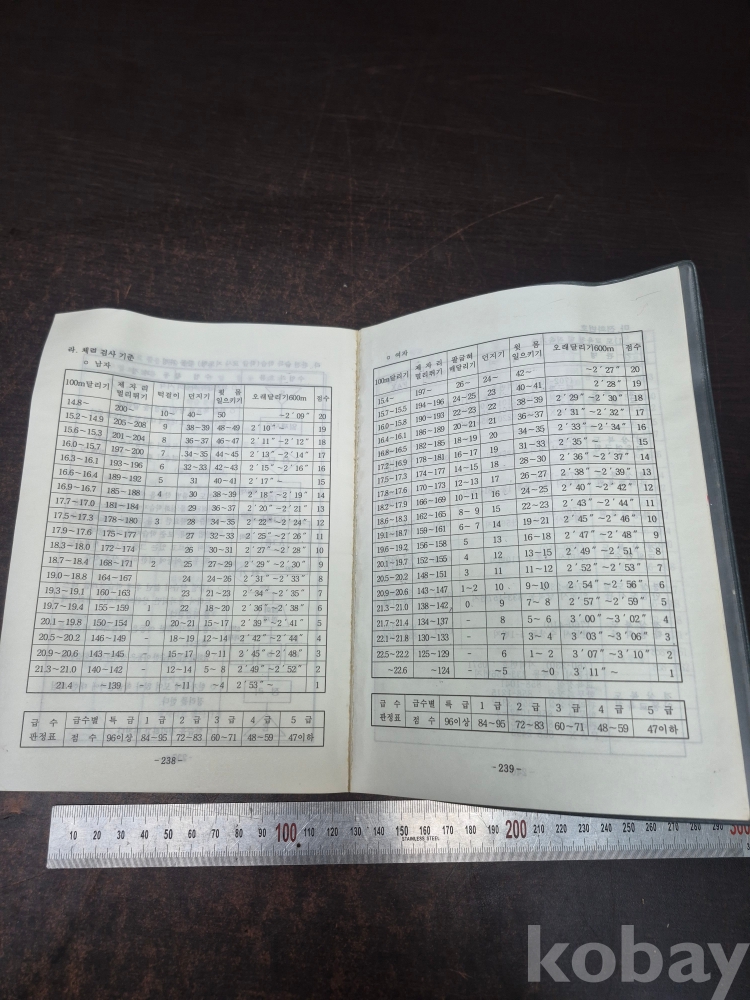 라. 체력 검사 기준
ㅇ 남자
100m달리기 제 자 리 멀리뛰기 턱걸이 던지기 윗 몸 일으키기 오래달리기600m 점수
14.8~ 200~ 10~ 40~ 50 ~2′09″ 20
15.2~14.9 205~208 9 38~39 48~49 2′10″~ 19
15.6~15.3 201~204 8 36~37 46~47 2′11″~2′12″ 18
16.0~15.7 197~200 7 34~35 44~45 2′13″~2′14″ 17
16.3~16.1 193~196 6 32~33 42~43 2′15″~2′16″ 16
16.6~16.4 189~192 5 31 40~41 2′17″~ 15
16.9~16.7 185~188 4 30 38~39 2′18″~2′19″ 14
17.7~17.0 181~184 29 36~37 2′20″~2′21″ 13
17.5~17.3 178~180 3 28 34~35 2′22″~2′24″ 12
17.9~17.6 175~177 27 32~33 2′25″~2′26″ 11
18.3~18.0 172~174 26 30~31 2′27″~2′28″ 10
18.7~18.4 168~171 2 25 27~29 2′29″~2′30″ 9
19.0~18.8 164~167 24 24~26 2′31″~2′33″ 8
19.3~19.1 160~163 23 21~23 2′34″~2′35″ 7
19.7~19.4 155~159 1 22 18~20 2′36″~2′38″ 6
20.1~19.8 150~154 0 20~21 15~17 2′39″~2′41″ 5
20.5~20.2 146~149 - 18~19 12~14 2′42″~2′44″ 4
20.9~20.6 143~145 - 15~17 9~11 2′45″~2′48″ 3
21.3~21.0 140~142 - 12~14 5~8 2′49″~2′52″ 2
21.4 ~139 - ~11 ~4 2′53″~ 1
급 수 판정표 급수별 특 급 1 급 2 급 3 급 4 급 5 급
점 수 96이상 84~95 72~83 60~71 48~59 47이하
-238-
ㅇ 여자
100m달리기 제 자 리 멀리뛰기 팔굽혀 매달리기 던지기 윗 몸 일으키기 오래달리기600m 점수
15.4~ 197~ 26~ 24~ 42~ ~2′27″ 20
15.7~15.5 194~196 24~25 23 40~41 2′28″ 19
16.0~15.8 190~193 22~23 22 38~39 2′29″~2′30″ 18
16.4~16.1 186~189 20~21 21 36~37 2′31″~2′32″ 17
16.8~16.5 182~185 18~19 20 34~35 2′33″~2′34″ 16
17.2~16.9 178~181 16~17 19 31~33 2′35″~ 15
17.5~17.3 174~177 14~15 18 28~30 2′36″~2′37″ 14
17.8~17.6 170~173 12~13 17 26~27 2′38″~2′39″ 13
18.2~17.9 166~169 10~11 16 24~25 2′40″~2′42″ 12
18.6~18.3 162~165 8~9 15 22~23 2′43″~2′44″ 11
19.1~18.7 159~161 6~7 14 19~21 2′45″~2′46″ 10
19.6~19.2 156~158 5 13 16~18 2′47″~2′48″ 9
20.1~19.7 152~155 4 12 13~15 2′49″~2′51″ 8
20.5~20.2 148~151 3 11 11~12 2′52″~2′53″ 7
20.9~20.6 143~147 1~2 10 9~10 2′54″~2′56″ 6
21.3~21.0 138~142 0 9 7~8 2′57″~2′59″ 5
21.7~21.4 134~137 - 8 5~6 3′00″~3′02″ 4
22.1~21.8 130~133 - 7 3~4 3′03″~3′06″ 3
22.5~22.2 125~129 - 6 1~2 3′07″~3′10″ 2
~22.6 ~124 - ~5 ~0 3′11″~ 1
급 수 판정표 급수별 특 급 1 급 2 급 3 급 4 급 5 급
점 수 96이상 84~95 72~83 60~71 48~59 47이하
-239-
10 20 30 40 50 60 70 80 90 100 110 120 130 140 150 160 170 180 190 200 210 220 230 240 250 260 270 280 290 300
STAINLESS STEEL
kobay